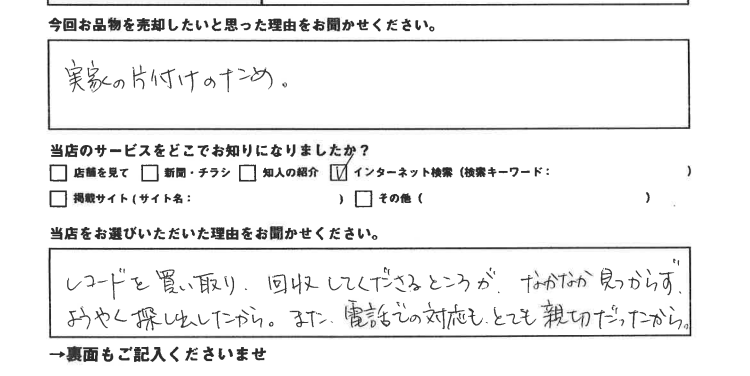 今回お品物を売却したいと思った理由をお聞かせください。
実家の片付けのため。
当店のサービスをどこでお知りになりましたか？
□ 店舗を見て □ 新聞・チラシ □ 知人の紹介 ☑ インターネット検索（検索キーワード：　　　　　）
□ 掲載サイト（サイト名：　　　　　） □ その他（　　　　　）
当店をお選びいただいた理由をお聞かせください。
レコードを買い取り、回収してくださるところが、なかなか見つからず、
ようやく探し出したから。また、電話での対応も、とても親切だったから。
→裏面もご記入くださいませ